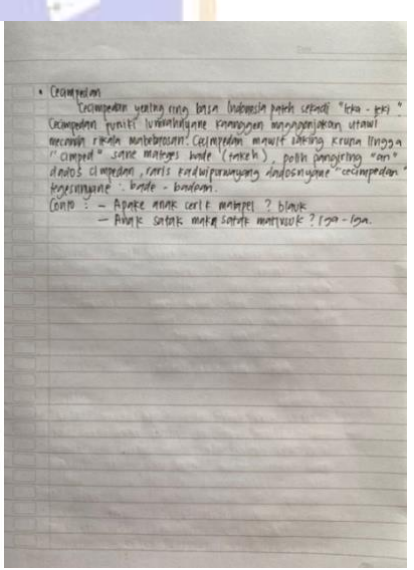 • Cecimpedan
Cecimpedan yening ring basa Indonesia pateh sekadi "teka - teki".
Cecimpedan puniki lumrahnyane kaanggen magegonjakan utawi
mecanda rikala matebrosan. Cecimpedan mawit saking kruna lingga
"cimped" sane mateges bade (takeh), polih pangiring "an"
dados cimpedan, raris kadwipurwayang dadosnyane "cecimpedan"
tegesnyane : bade - badean.
Conto : - Apake anak cerik matapel ? blauk
- Anak satak maka satak matusuk ? Iga - Iga.